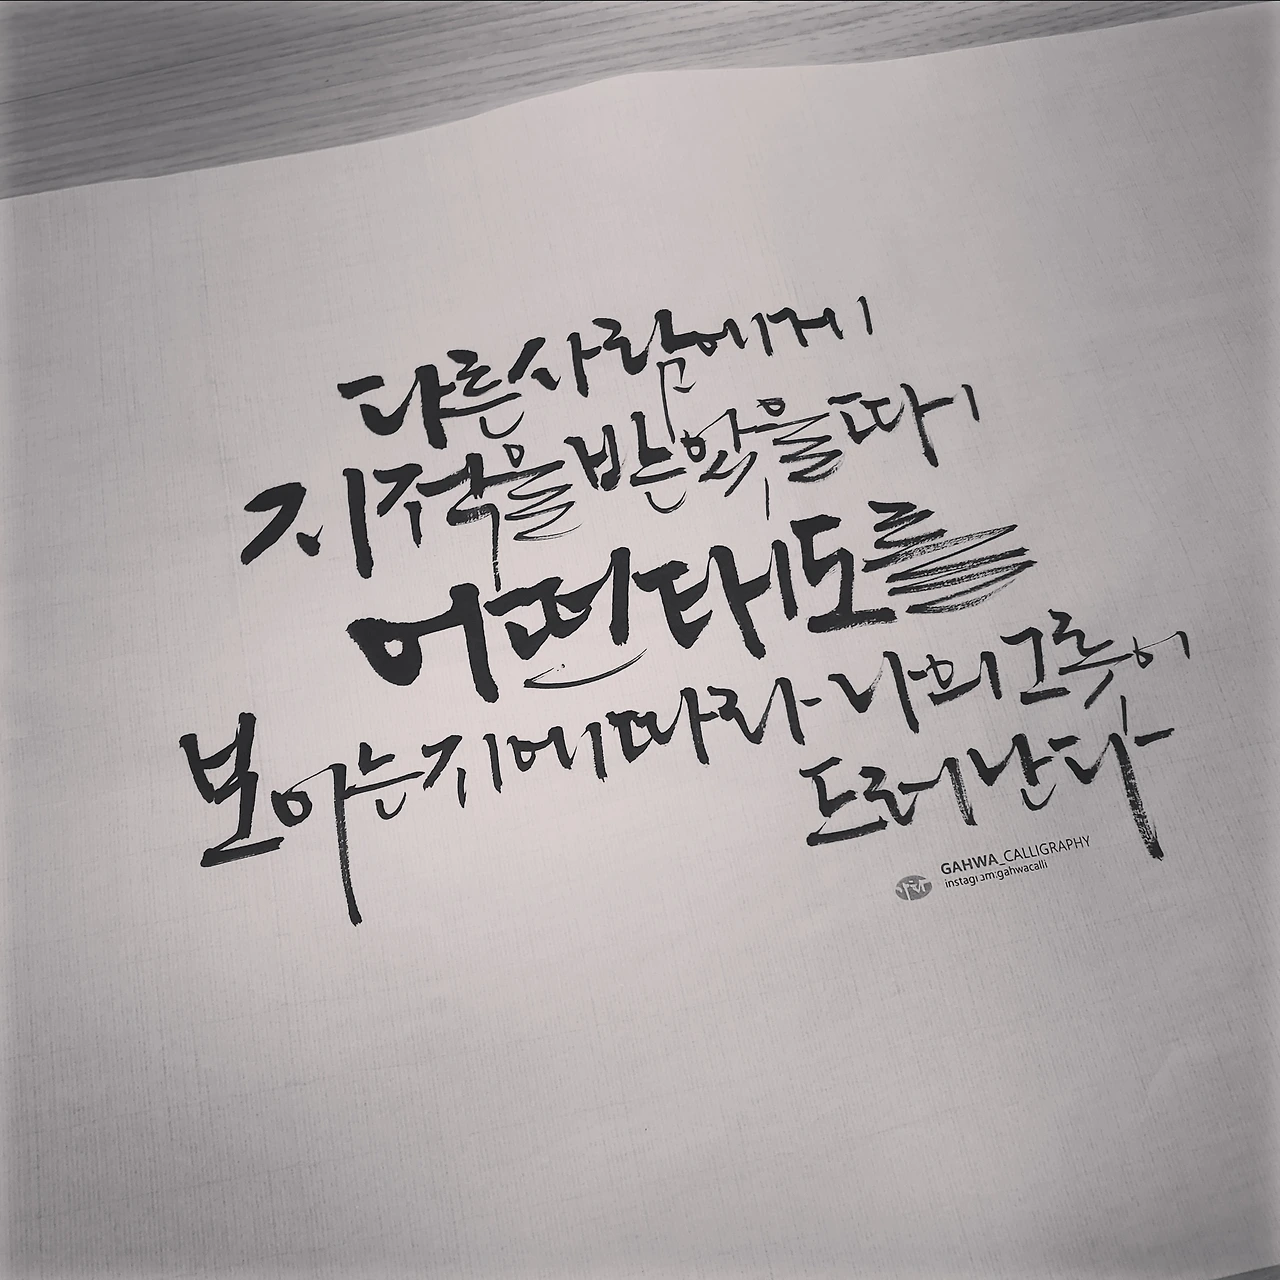 다른사람에게
지적을받았을때
어떤태도를
보이는지에따라 나의그릇이
드러난다
GAHWA_CALLIGRAPHY
instagram:gahwacalli